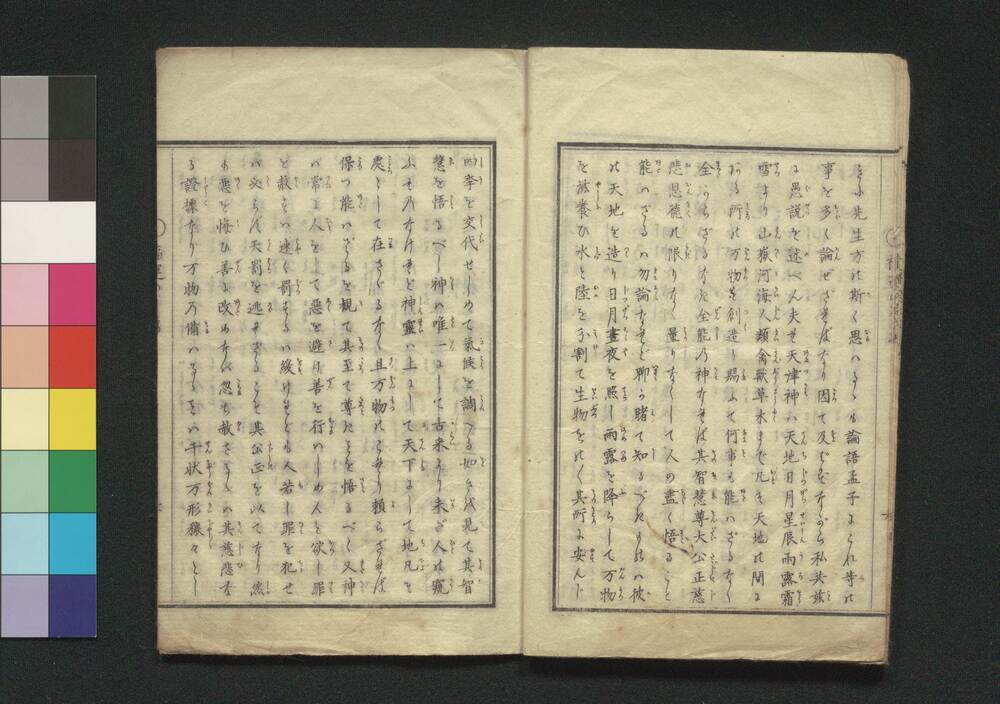 先生方は斯く思ハるゝも論語孟子にこれ等の
事を多く論ぜざればなり因て及ばずながら私共族
に愚説を述べん夫レ天津神ハ天地日月星辰雨露霜
雪より山嶽河海人類禽獣草木まで凡そ天地の間に
有る所の万物を創造し賜ふて何事も能ハざるなく
全からざるなき全能の神なれば其智慧尊大公正慈
悲恩徳の限りなく量りなくして人の盡く悟ること
能ハざるハ勿論なれど聊か睹て知るべきものハ彼
の天地を造り日月晝夜を照し雨露を降らして万物
を滋養ひ水と陸を分割て生物をして其所に安んじ
四季を交代せしめて氣候を調ふる如きを見て其智
慧を悟るべし神の唯一にして古来より未だ人の窺
ふものなけれど神靈ハ上にして天下にして地凡そ
處として在さゞるなく且万物のこれに頼らざれば
保つ能ハざるを観て其至て尊きことを悟るべく又神
ハ常に人をして悪を避け善を行ハしめんと欲し罪
を赦るすハ速く罰するハ緩けれども人若し罪を犯せ
バ必らず天罰を逃れざることハ其公正を以てなり然
も悪を悔ひ善に改めなバ忽ち赦さるゝハ其慈悲な
る證據なり万物の備ハるをいハゞ千状万形種々とし